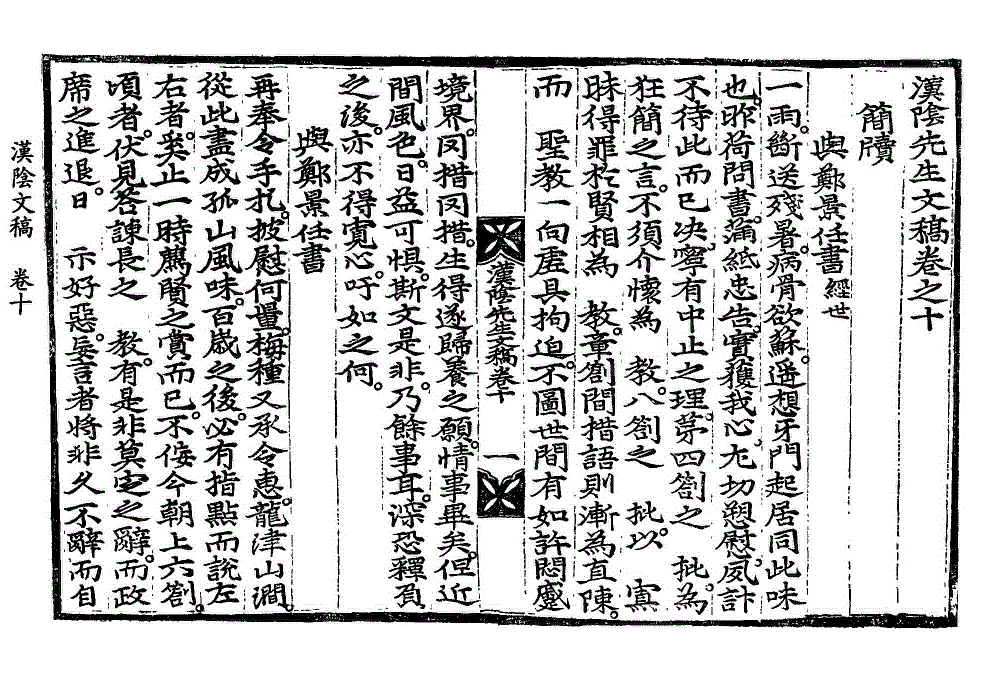 漢陰先生文稿卷之十
簡牘
與鄭景任書 經世
一雨。斷送殘暑。病骨欲蘇。遙想牙門起居同此味
也。昨荷問書。滿紙忠告。實獲我心。尤切慰。夙計
不待此而已决。寧有中止之理。第四箚之 批。為
狂簡之言。不須介懷為 敎。八箚之 批。以 寡
昧得罪於賢相為 敎。章箚間措語則漸為直陳。
而 聖敎一向虛具拘迫。不圖世間有如許悶蹙
漢陰先生文稿卷十 一
境界。罔措罔措。生得遂歸養之願。情事畢矣。但近
間風色。日益可惧。斯文是非。乃餘事耳。深恐釋負
之後。亦不得寬心。吁如之何。
與鄭景任書
再奉令手札。披慰何量。梅種又承令惠。龍津山澗。
從此盡成孤山風味。百歲之後。必有指點而說左
右者。奚止一時薦賢之賞而已。不侫今朝上六箚。
頃者。伏見答諫長之 敎。有是非莫定之辭。而政
席之進退。日 示好惡。妄言者將非久不辭而自
漢陰文稿 卷十